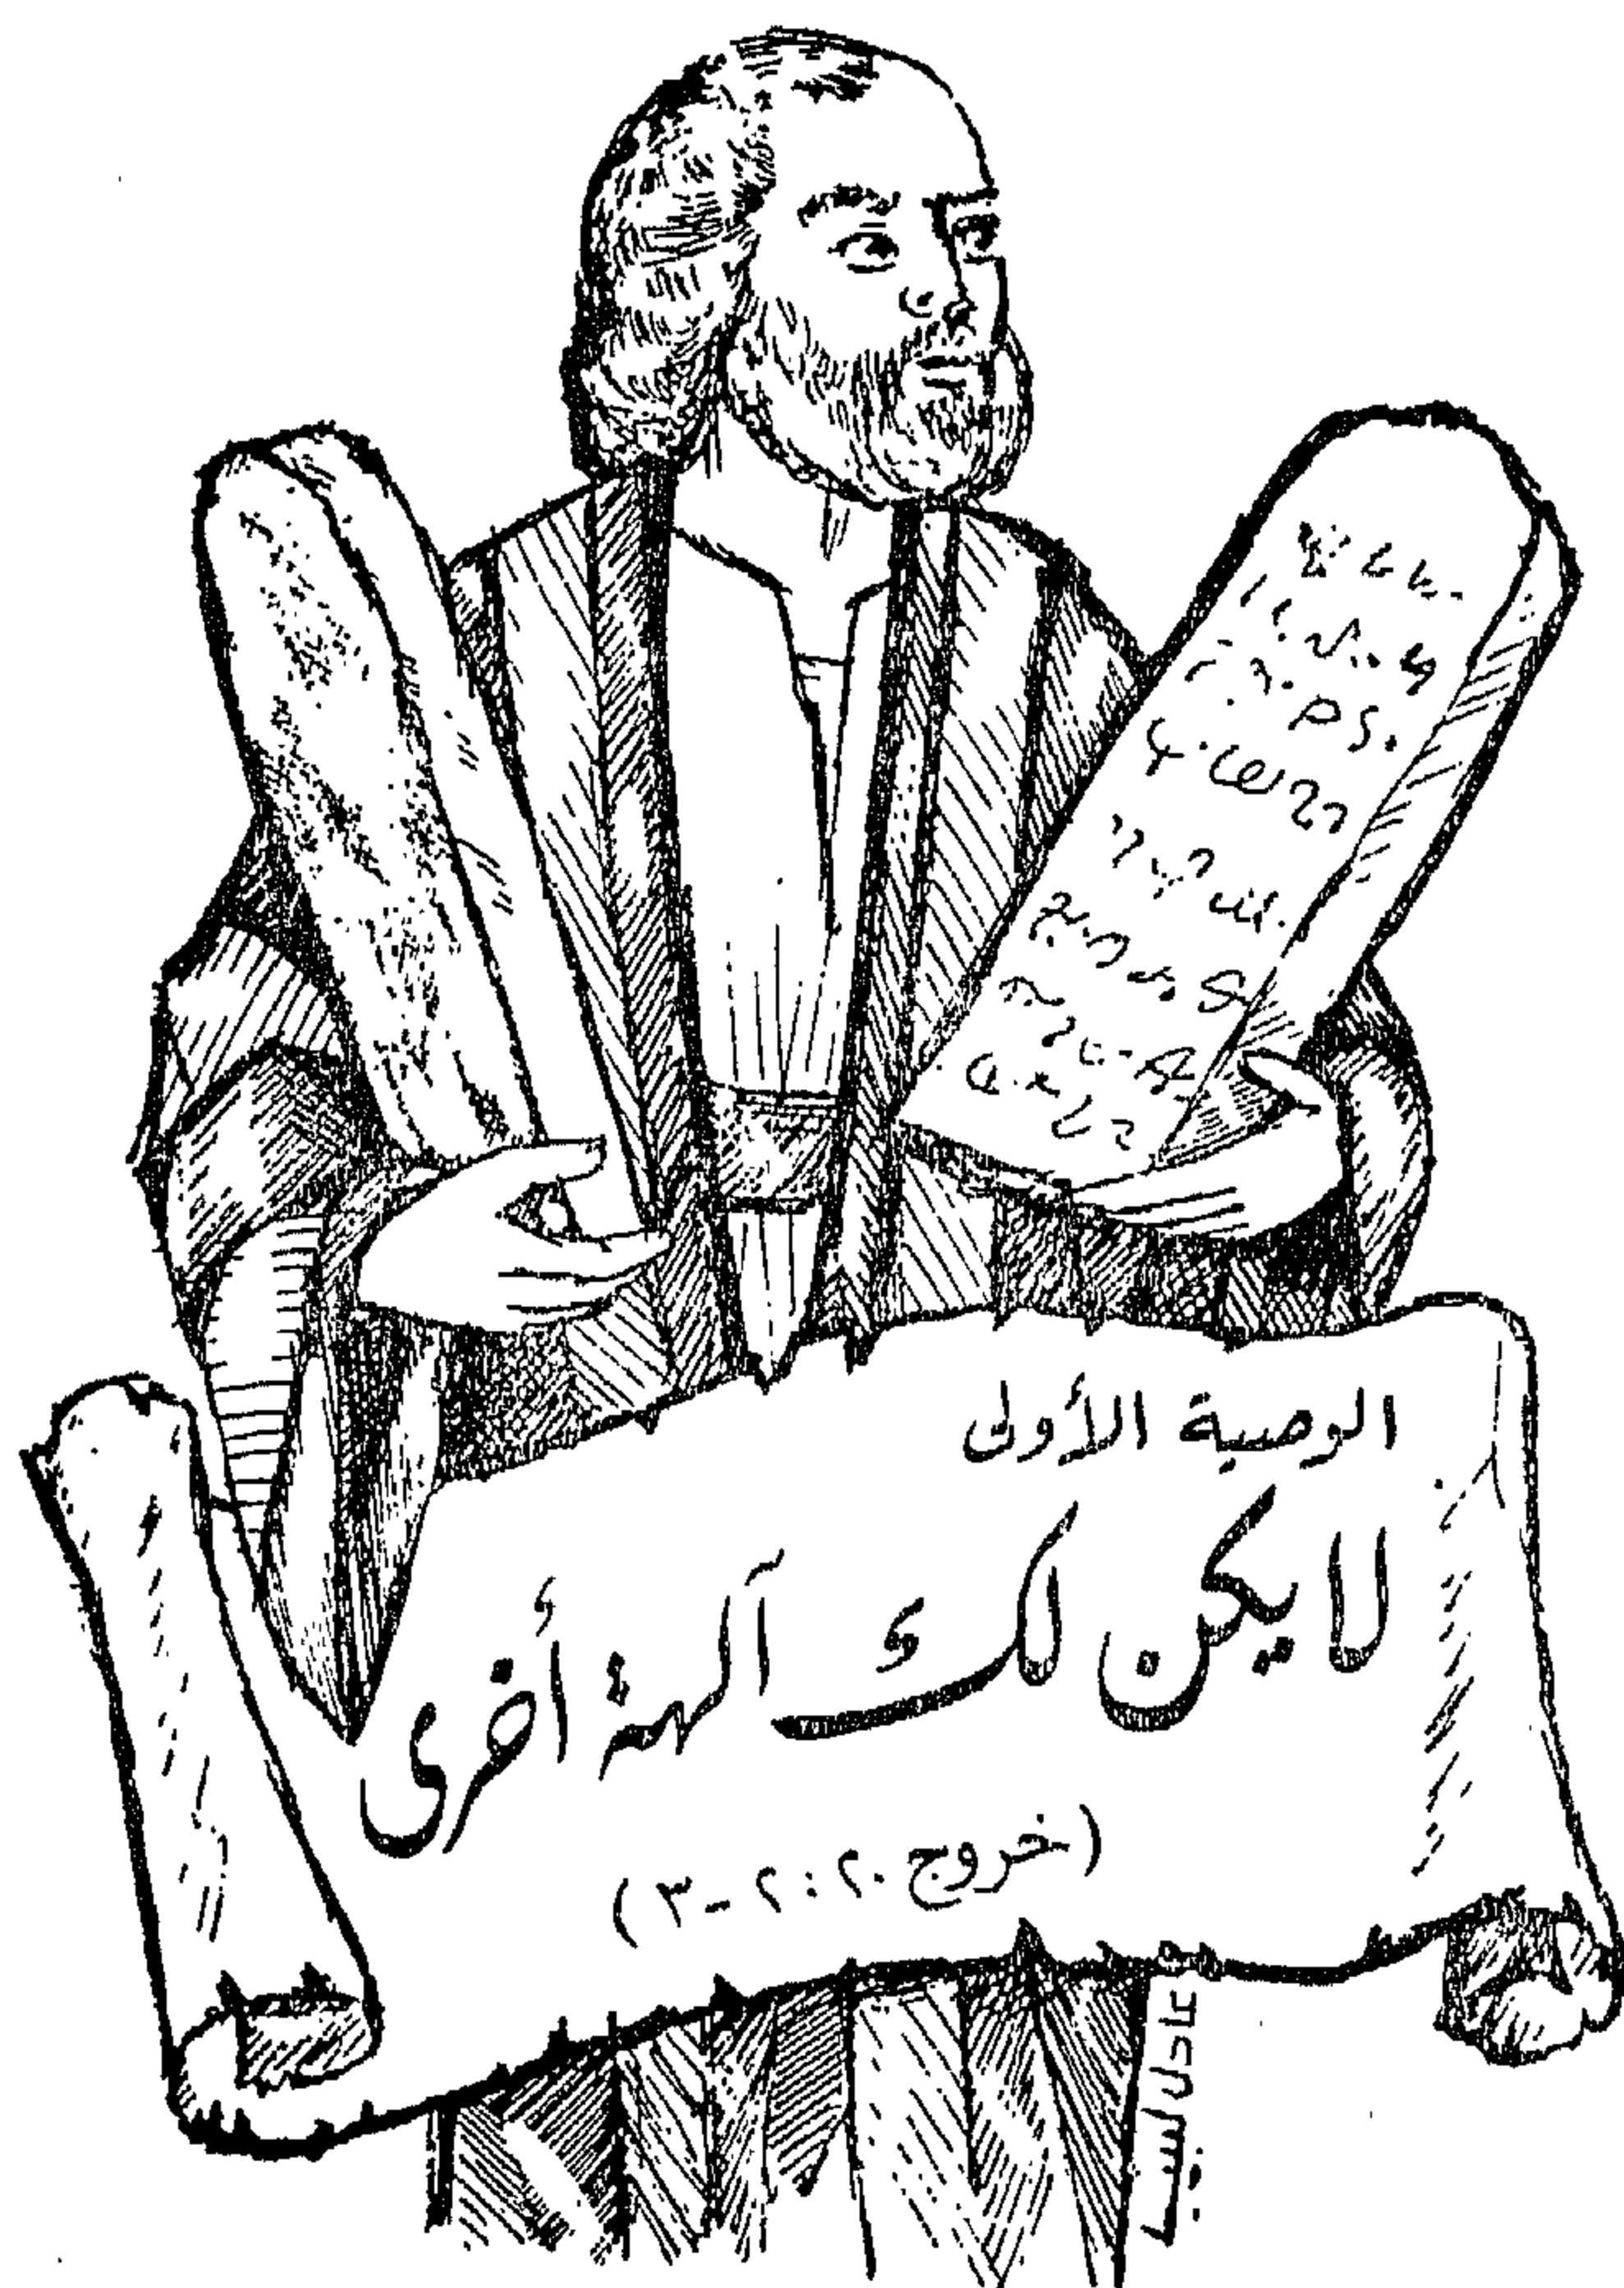 الوصية الأولى
لا يكن لك آلهة أخرى
(خروج ٢٠: ٢-٣)